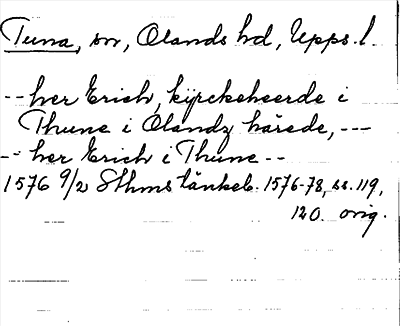 Tuna, sn, Olands hd, Upps. l.
-- her Erich, kyrckeheerde i
Thune i Olandz härede, ---
-- her Erich i Thune --
1576 9/2 Sthms tänkeb. 1576-78, ss. 119,
120. orig.